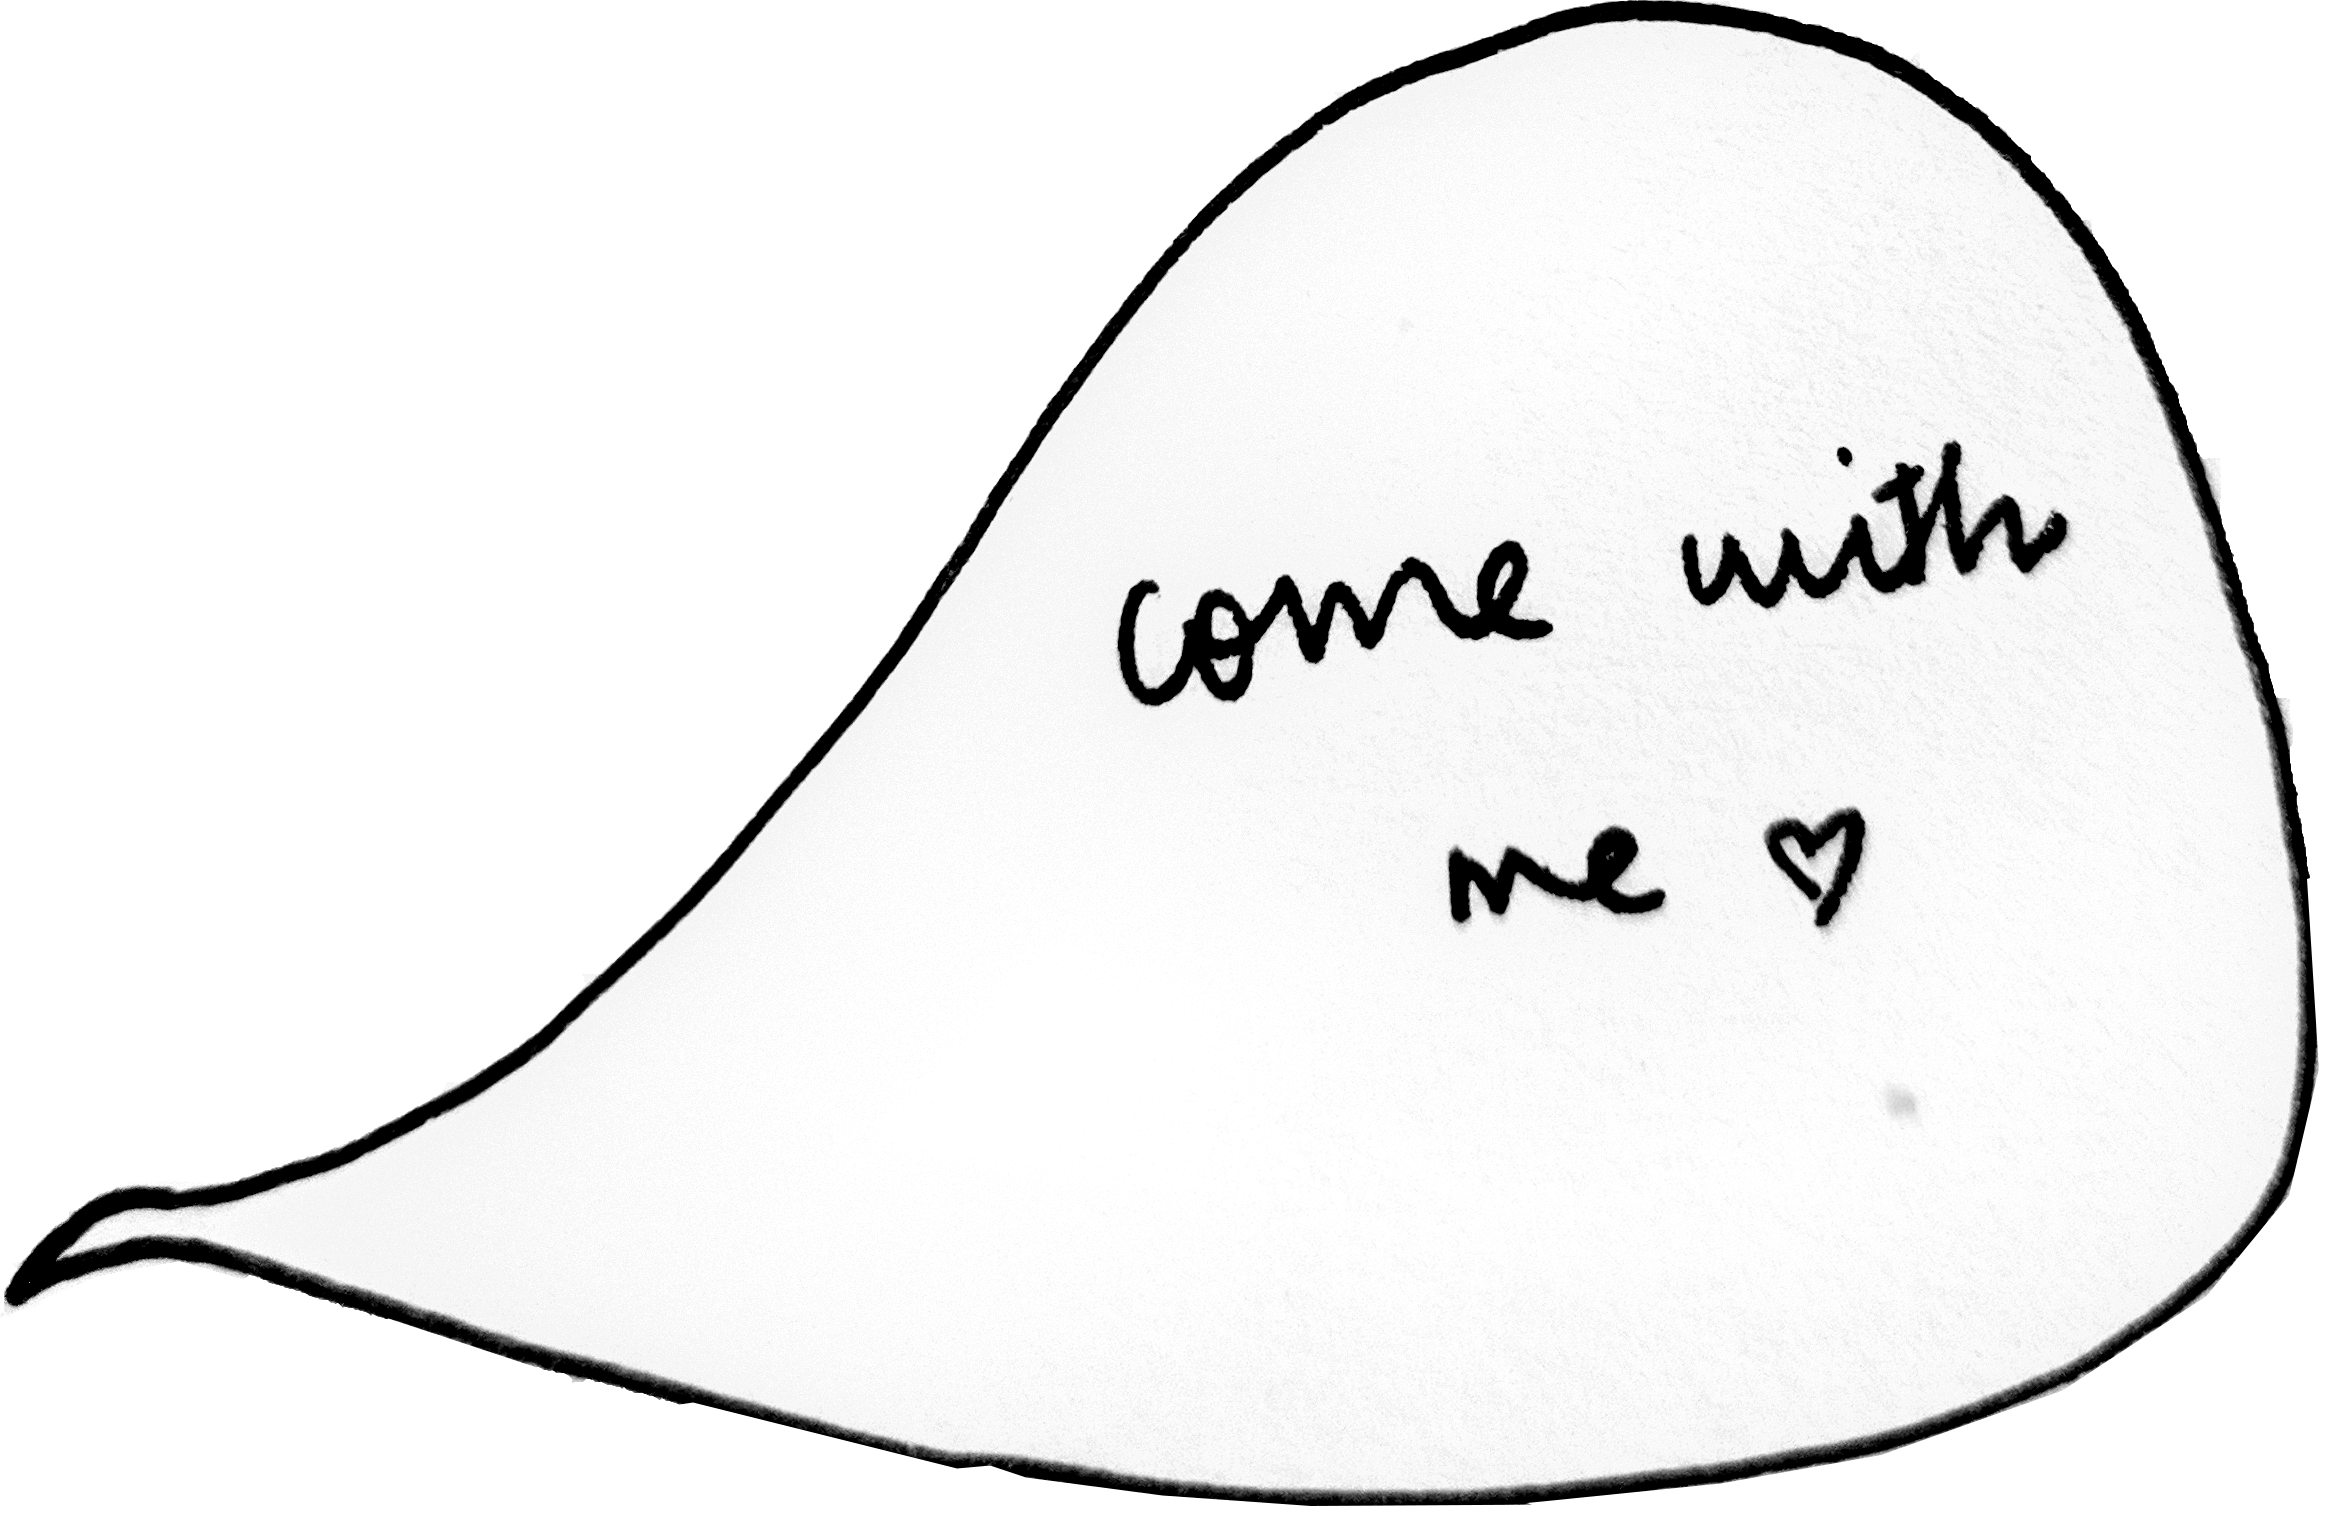 come with
me ♡